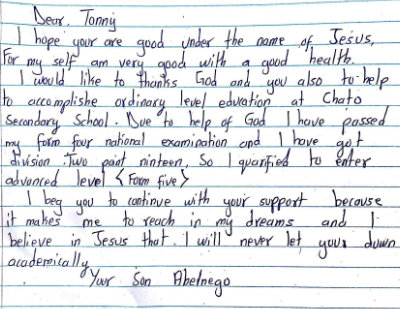 Dear, Tonny
I hope your are good under the name of Jesus,
For my self am very good with a good health.
I would like to thanks God and you also to help
to accomplishe ordinary level education at Chato
Secondary School. Due to help of God I have passed
my form four national examination and I have got
division Two point ninteen, So I quarified to enter
advanced level <Form five>
I beg you to continue with your support because
it makes me to reach in my dreams and I
believe in Jesus that. I will never let your down
academically
Your Son Abelnego